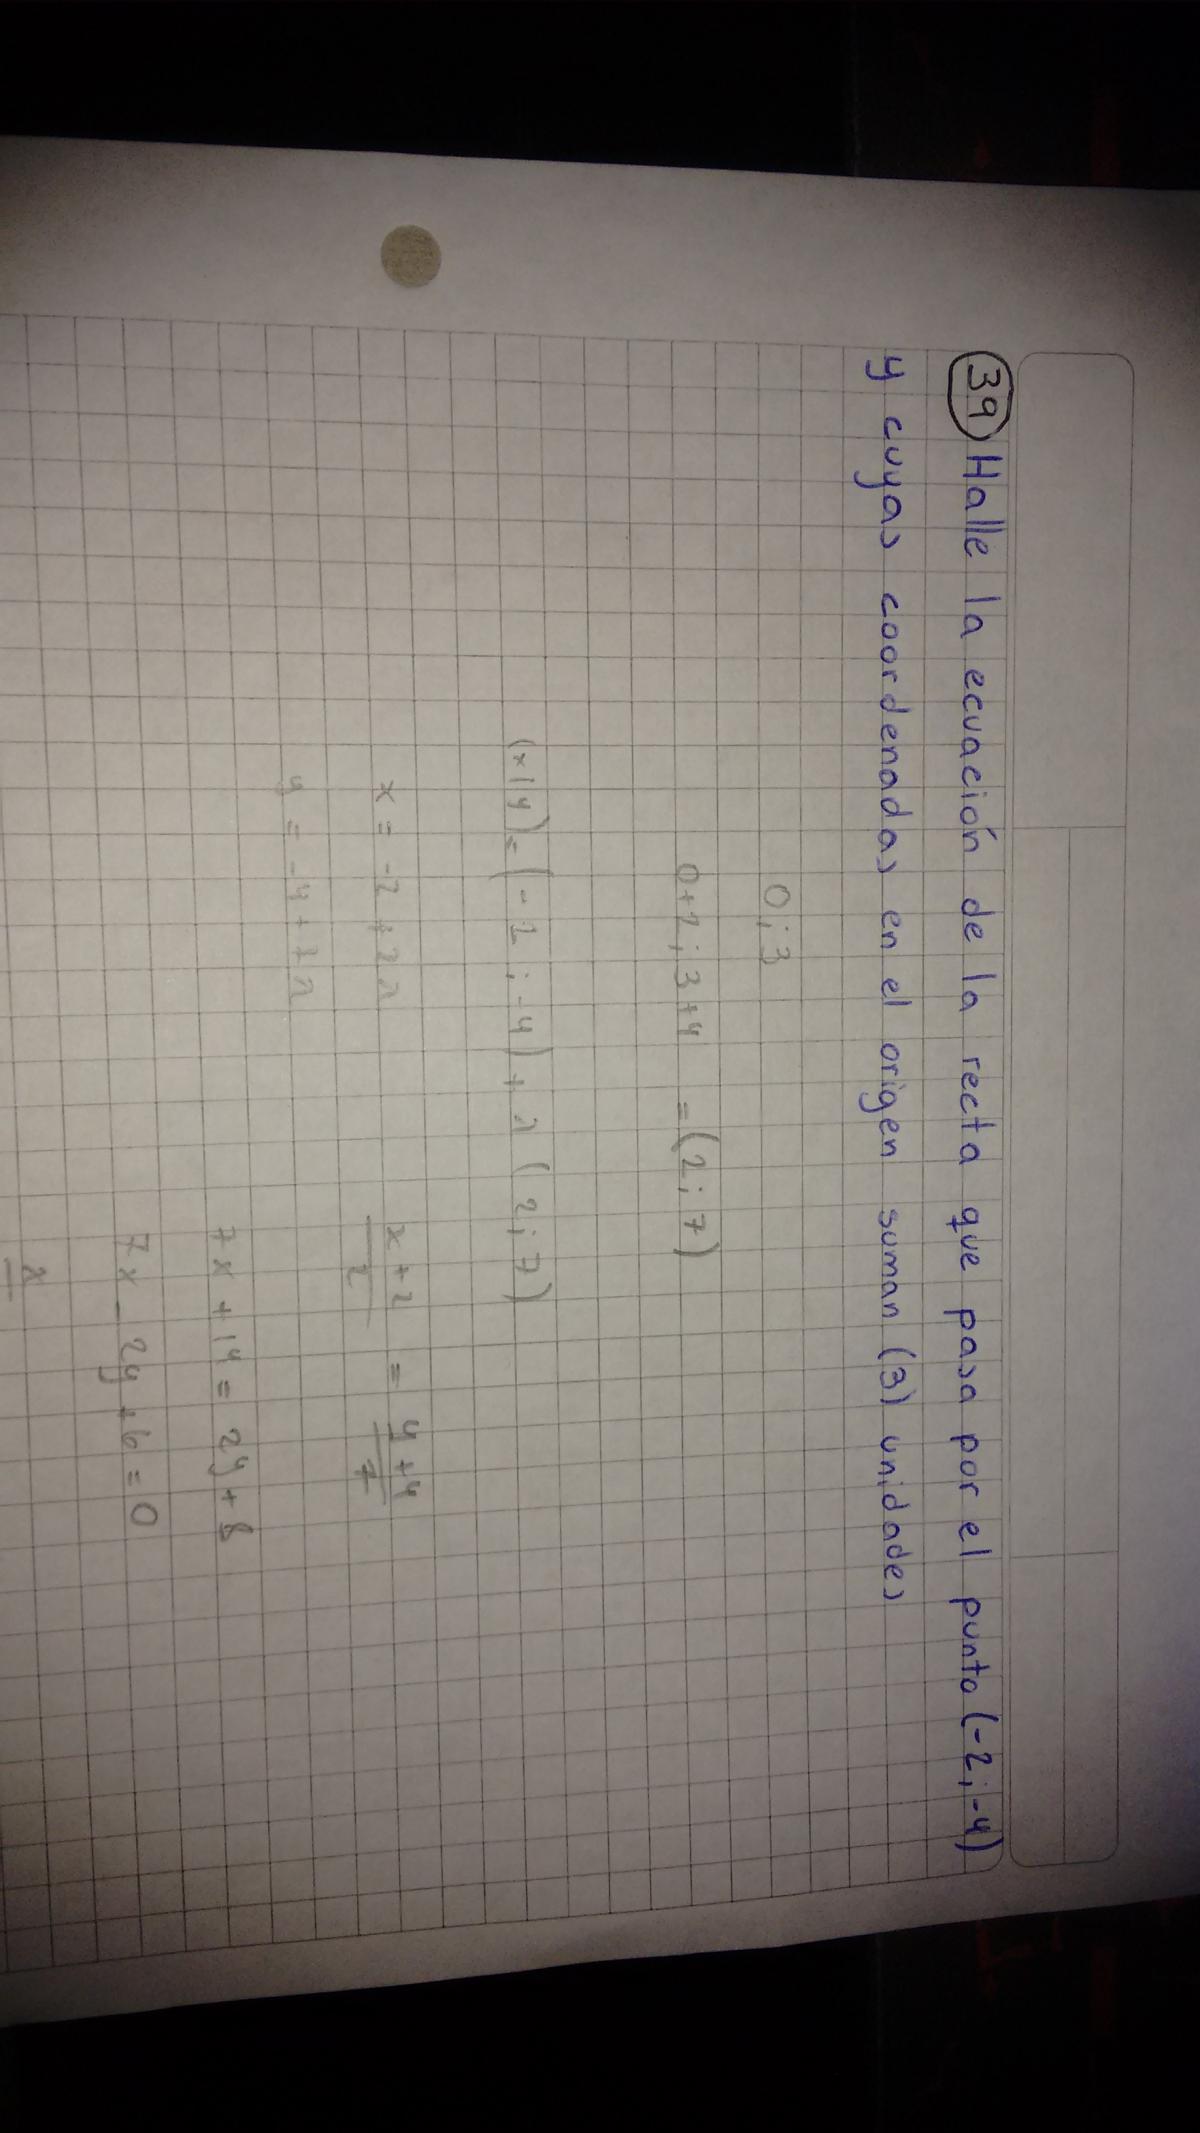 39 Halle la ecuación de la recta que pasa por el punto (-2;-4)
y cuyas coordenadas en el origen suman (3) unidades
0;3
0+2;3+4 =(2;7)
(x;y)=(-2;-4)+λ(2;7)
x=-2+2λ
y=-4+7λ
x+2/2 = y+4/7
7x+14=2y+8
7x-2y+6=0
x